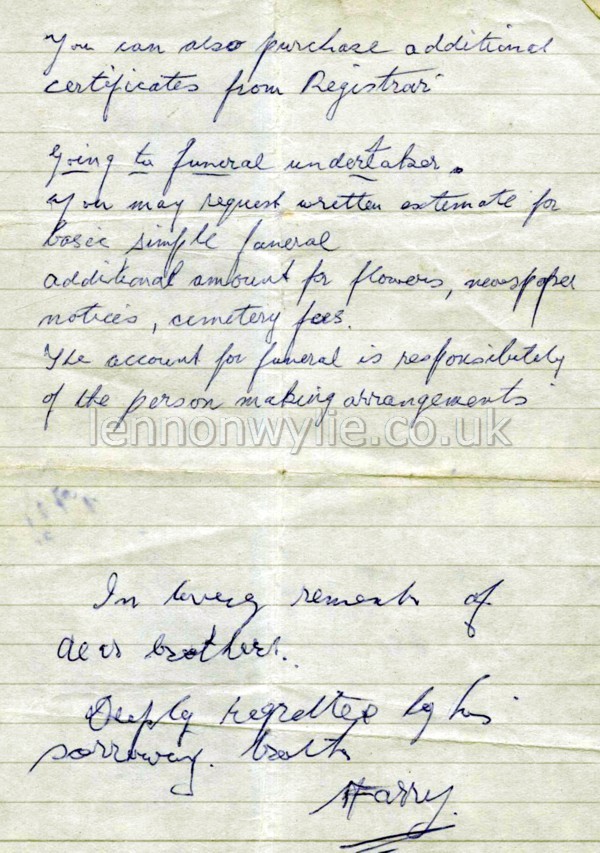 You can also purchase additional
certificates from Registrar
Going to funeral undertaker.
You may request written estemate for
basic simple funeral
additional amount for flowers, newspaper
notices, cemetery fees.
The account for funeral is responsibility
of the person making arrangements
lennonwylie.co.uk
In loving of
dear brother.
Deeply regretted by his
sorrowing.
Harry.